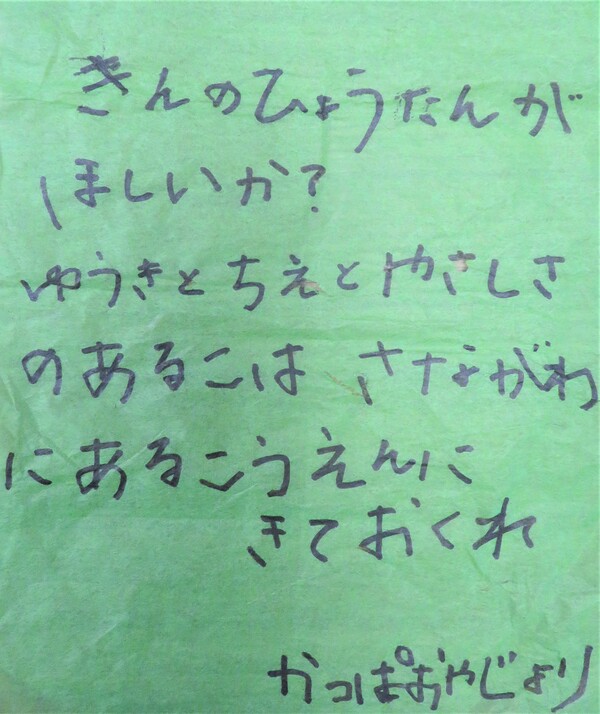 きんのひょうたんが
ほしいか?
ゆうきとちえとやさしさ
のあるこは さながわ
にあるこうえんに
きておくれ
かっぱおやじより